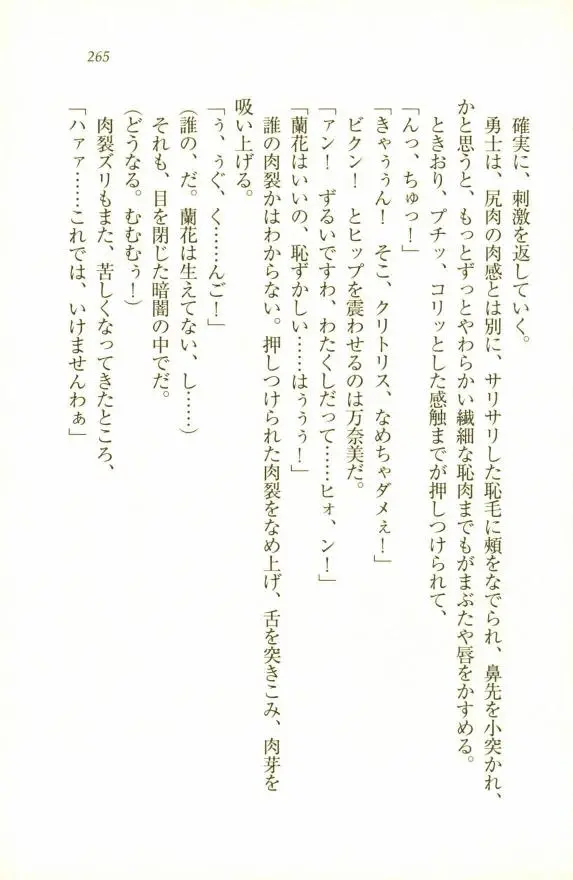 265
確実に、刺激を返していく。
勇士は、尻肉の肉感とは別に、サリサリした恥毛に頰をなでられ、鼻先を小突かれ、
かと思うと、もっとずっとやわらかい繊細な恥肉までもがまぶたや唇をかすめる。
ときおり、プチッ、コリッとした感触までが押しつけられて、
「んっ、ちゅっ！」
「きゃぅぅん！　そこ、クリトリス、なめちゃダメぇ！」
ビクン！　とヒップを震わせるのは万奈美だ。
「ァン！　ずるいですわ、わたくしだって……ヒォ、ン！」
「蘭花はいいの、恥ずかしい……はぅぅぅ！」
誰の肉裂かはわからない。押しつけられた肉裂をなめ上げ、舌を突きこみ、肉芽を
吸い上げる。
「ぅ、ぅぐ、く……んご！」
（誰の、だ。蘭花は生えてない、し……）
それも、目を閉じた暗闇の中でだ。
（どうなる。むむむぅ！）
肉裂ズリもまた、苦しくなってきたところ、
「ハァァ……これでは、いけませんわぁ」